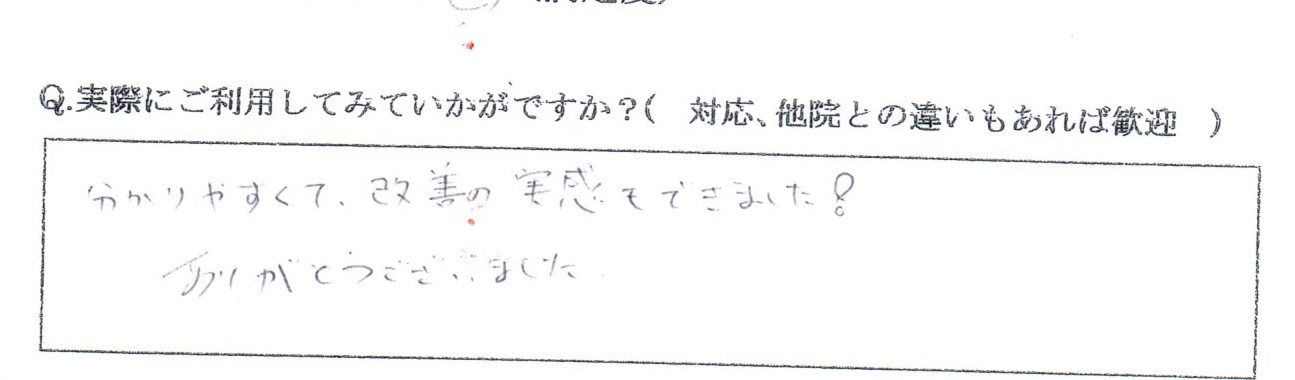 Q.実際にご利用してみていかがですか？( 対応、他院との違いもあれば歓迎 )
分かりやすくて、改善の実感もできました！
ありがとうございました